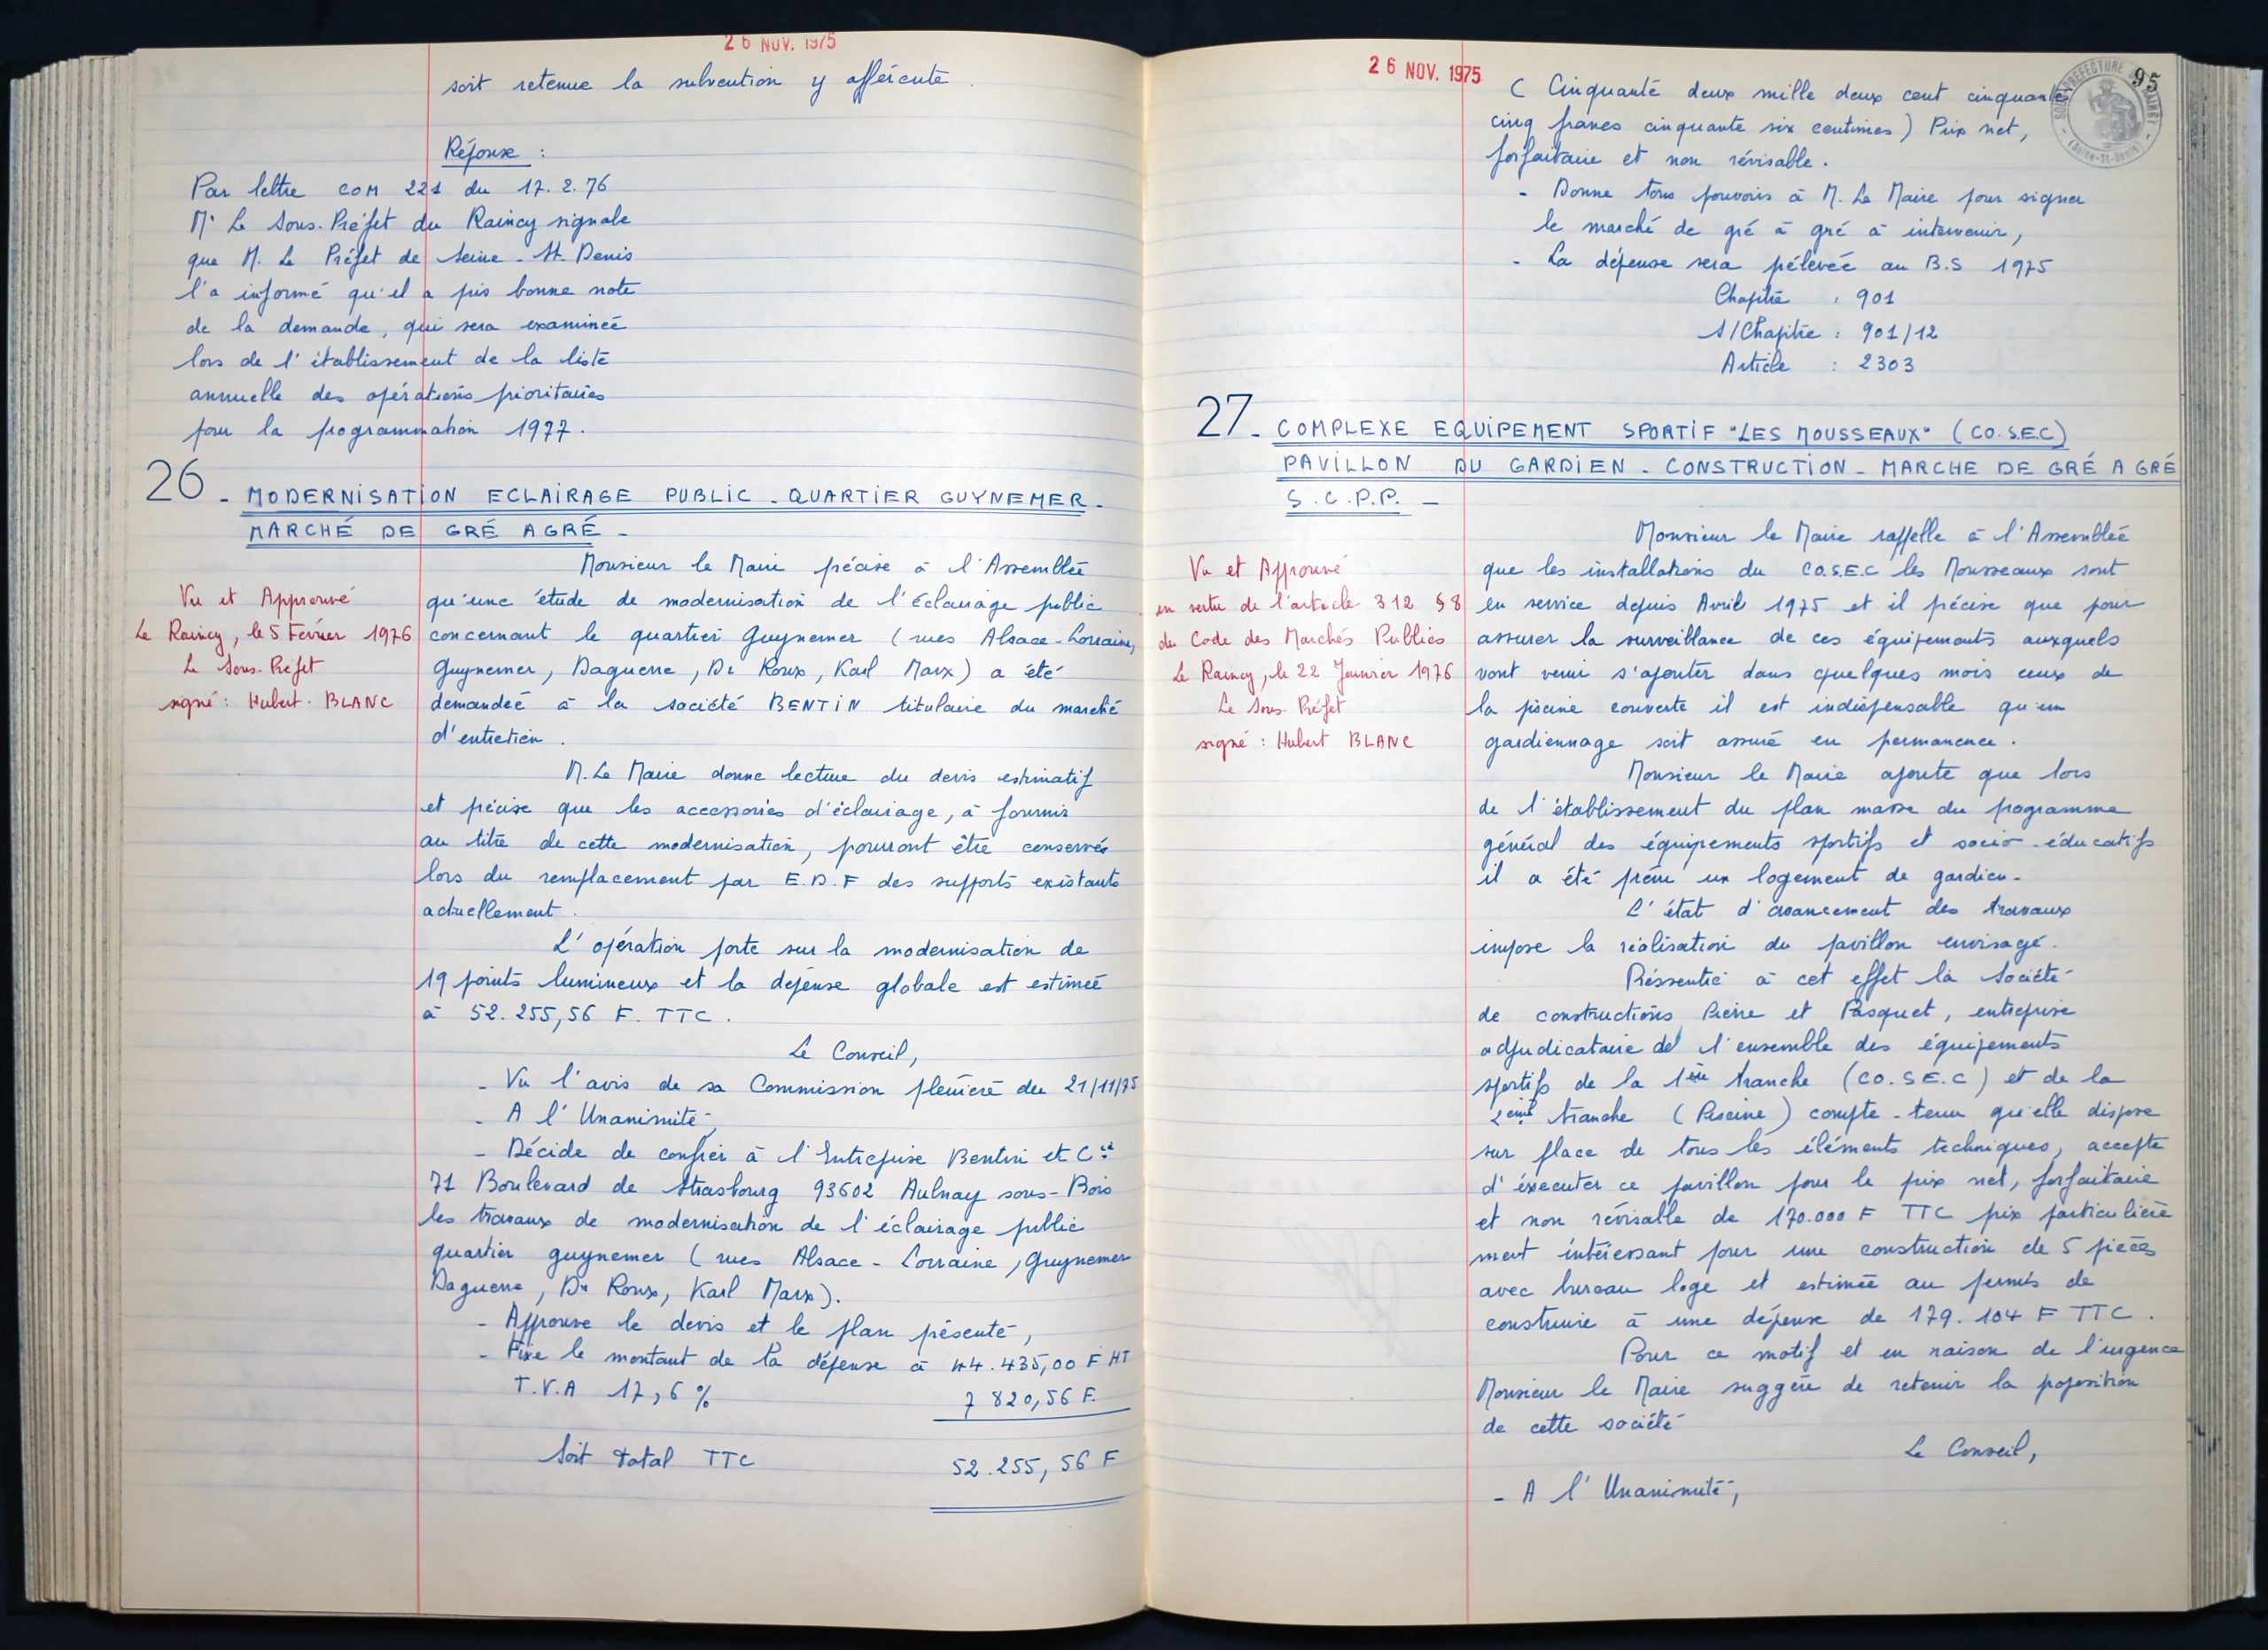 26 NOV. 1975
soit retenue la subvention y afférente.
Réponse :
Par lettre COM 221 du 17.2.76
Mr Le Sous-Préfet du Raincy signale
que M. Le Préfet de Seine-St-Denis
l'a informé qu'il a pris bonne note
de la demande, qui sera examinée
lors de l'établissement de la liste
annuelle des opérations prioritaires
pour la programmation 1977.
26 - MODERNISATION ECLAIRAGE PUBLIC - QUARTIER GUYNEMER -
MARCHÉ DE GRÉ A GRÉ -
Monsieur le Maire précise à l'Assemblée
qu'une étude de modernisation de l'éclairage public
concernant le quartier Guynemer (rues Alsace-Lorraine,
Guynemer, Daguerre, Dr Roux, Karl Marx) a été
demandée à la société BENTIN titulaire du marché
d'entretien.
Vu et Approuvé
Le Raincy, le 5 Février 1976
Le Sous-Préfet
signé : Hubert BLANC
M. Le Maire donne lecture du devis estimatif
et précise que les accessoires d'éclairage, à fournir
au titre de cette modernisation, pourront être conservés
lors du remplacement par E.D.F des supports existants
actuellement.
L'opération porte sur la modernisation de
19 points lumineux et la dépense globale est estimée
à 52.255,56 F. TTC.
Le Conseil,
- Vu l'avis de sa Commission plénière du 21/11/75
- A l'Unanimité,
- Décide de confier à l'Entreprise Bentin et Cie
71 Boulevard de Strasbourg 93602 Aulnay sous-Bois
les travaux de modernisation de l'éclairage public
quartier guynemer (rues Alsace-Lorraine, Guynemer
Daguerre, Dr Roux, Karl Marx).
- Approuve le devis et le plan présenté,
- Fixe le montant de la dépense à 44.435,00 F HT
T.V.A 17,6 % 7 820,56 F.
Soit total TTC 52.255,56 F
26 NOV. 1975
95
SOUS-PREFECTURE DU RAINCY
(Seine-St-Denis)
( Cinquante deux mille deux cent cinquante
cinq francs cinquante six centimes) Prix net,
forfaitaire et non révisable.
- Donne tous pouvoirs à M. Le Maire pour signer
le marché de gré à gré à intervenir,
- La dépense sera prélevée au B.S 1975
Chapitre : 901
S/Chapitre : 901/12
Article : 2303
27 - COMPLEXE EQUIPEMENT SPORTIF "LES MOUSSEAUX" (CO.S.E.C)
PAVILLON DU GARDIEN - CONSTRUCTION - MARCHE DE GRÉ A GRÉ
S.C.P.P. -
Vu et Approuvé
en vertu de l'article 312 §8
du Code des Marchés Publics
Le Raincy, le 22 Janvier 1976
Le Sous-Préfet
signé : Hubert BLANC
Monsieur le Maire rappelle à l'Assemblée
que les installations du CO.S.E.C les Mousseaux sont
en service depuis Avril 1975 et il précise que pour
assurer la surveillance de ces équipements auxquels
vont venir s'ajouter dans quelques mois ceux de
la piscine couverte il est indispensable qu'un
gardiennage soit assuré en permanence.
Monsieur le Maire ajoute que lors
de l'établissement du plan masse du programme
général des équipements sportifs et socio-éducatifs
il a été prévu un logement de gardien.
L'état d'avancement des travaux
impose la réalisation du pavillon envisagé.
Préssentie à cet effet la Société
de constructions Pierre et Pasquet, entreprise
adjudicataire de l'ensemble des équipements
sportifs de la 1ère tranche (CO.S.E.C) et de la
2ème tranche (Piscine) compte-tenu qu'elle dispose
sur place de tous les éléments techniques, accepte
d'éxecuter ce pavillon pour le prix net, forfaitaire
et non révisable de 170.000 F TTC prix particulière
ment intéressant pour une construction de 5 pièces
avec bureau loge et estimée au permis de
construire à une dépense de 179.104 F TTC.
Pour ce motif et en raison de l'urgence
Monsieur le Maire suggère de retenir la proposition
de cette société
Le Conseil,
- A l'Unanimité,